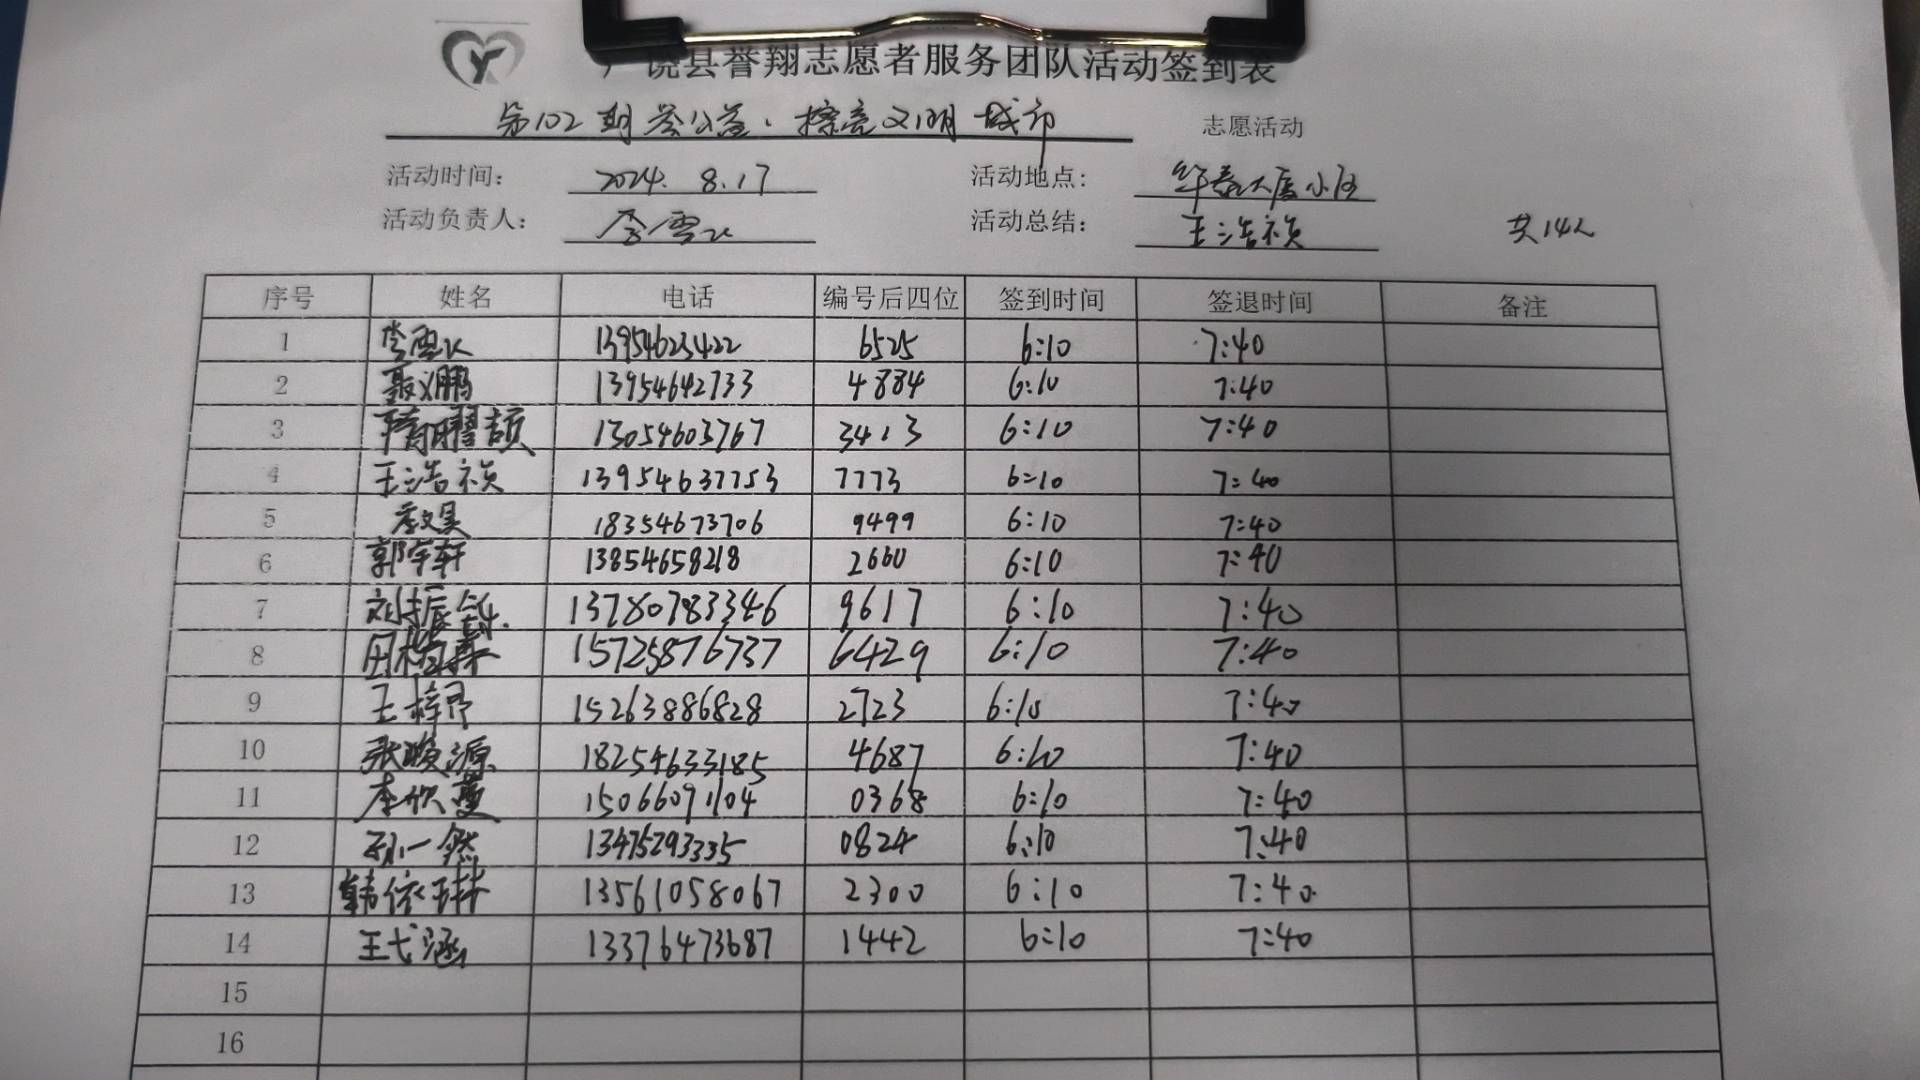 饶县誉翔志愿者服务团队活动签到表
第102期 益公益、擦亮文明城市 志愿活动
活动时间： 2024. 8.17 活动地点： 华泰大厦小区
活动负责人： 李雪 活动总结： 王浩祯 共14人
序号 姓名 电话 编号后四位 签到时间 签退时间 备注
1 李雪 13954623422 6525 6:10 7:40
2 聂义鹏 13954642733 4884 6:10 7:40
3 13054603767 3413 6:10 7:40
4 王浩祯 13954637753 7773 6:10 7:40
5 李文昊 18354673706 9499 6:10 7:40
6 郭宇轩 13854658218 2660 6:10 7:40
7 刘振 13780783346 9617 6:10 7:40
8 田 15725876737 6429 6:10 7:40
9 王梓 15263886828 2723 6:10 7:40
10 张 源 18254633185 4687 6:10 7:40
11 李欣蔓 15066091104 0368 6:10 7:40
12 孙一然 13475293335 0824 6:10 7:40
13 韩依琳 13561058067 2300 6:10 7:40
14 王弋涵 13376473687 1442 6:10 7:40
15
16